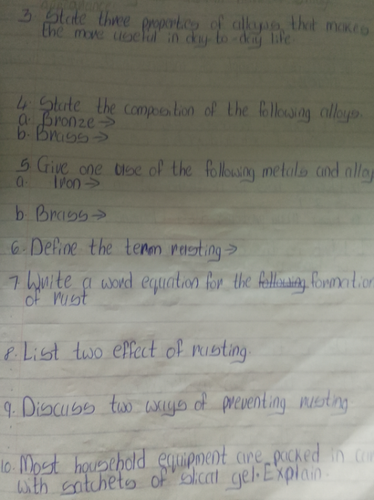 3 State three properties of alloys that makes
the more useful in day-to-day life
4. State the composition of the following alloys.
a. Bronze→
b. Brass→
5 Give one use of the following metals and alloy
a. Iron→
b. Brass→
6. Define the term rusting→
7 Write a word equation for the following formation
of rust
8. List two effect of rusting.
9. Discuss two ways of preventing rusting
10. Most household equipment are packed in
with satchets of slical gel. Explain.